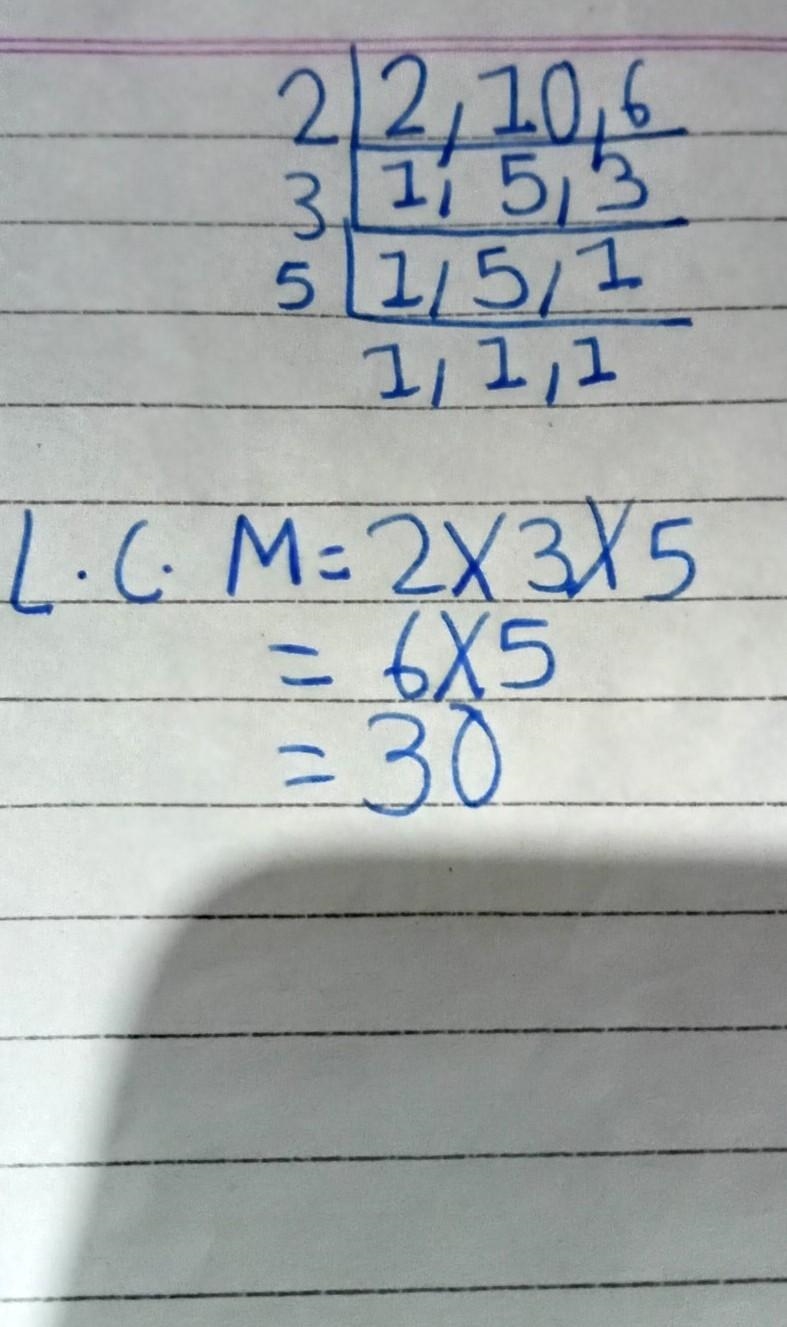 2 | 2, 10, 6
3 | 1, 5, 3
5 | 1, 5, 1
1, 1, 1
L.C.M = 2 X 3 X 5
= 6 X 5
= 30